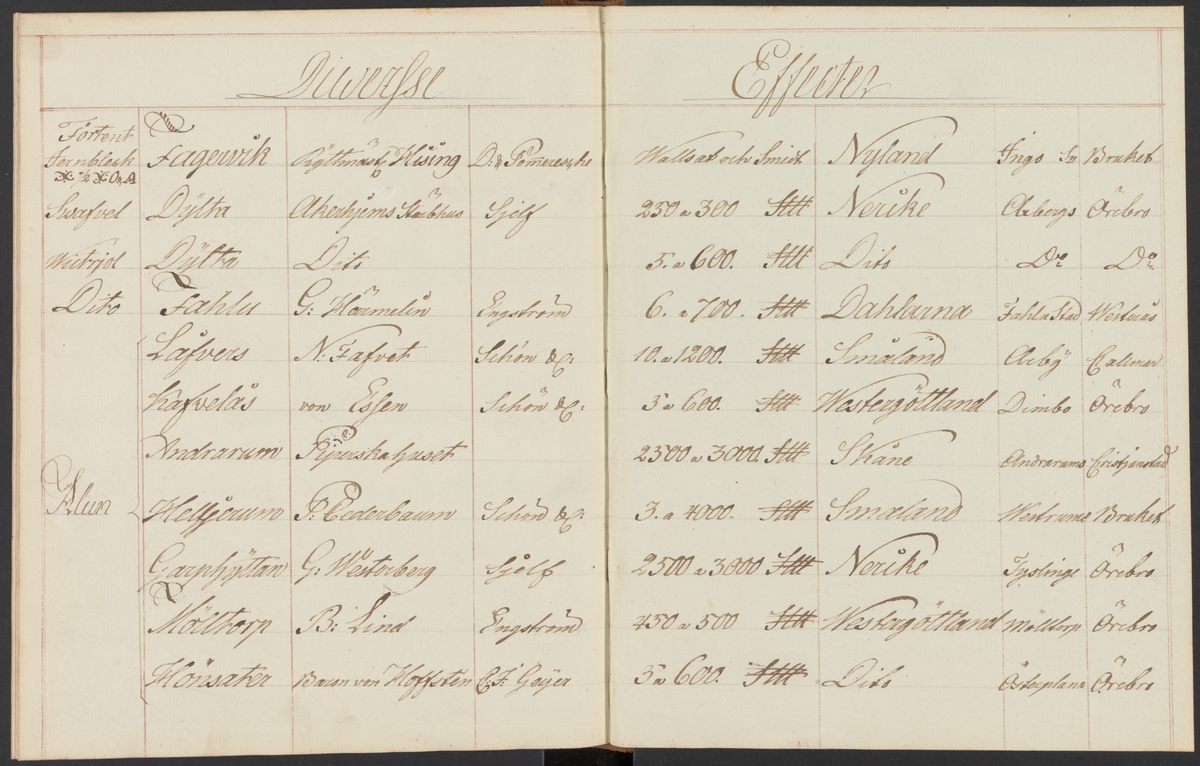 Diwersse Effecter
Förtent
Jernbleck Fagerwik Hising Wallsat och Smidt Nyland Ingo Sn Bruket
Swafvel Dÿlta Åkerhjems Stärbhus Sjelf 250 a 300 Sktt Nerike Axbergs Örebro
Wictrjol Dÿlta Dito 5. a 600. Sktt Dito Do Do
Dito Fahlu G: Härmelin Engström 6. a 700. Sktt Dahlarna Fahlu Stad Westerås
Låfvers N. Fafvet Schön &C: 10. a 1200. Sktt Småland Calmar
Kafvelås von Essen Schön &C: 5 a 600. Sktt Westergöttland Dimbo Örebro
Andrarum Pijnskahuset 2500 a 3000 Sktt Skåne Andrarums Cristjanstad
Alun
Helljerum P: Cederbaum Schön &C: 3. a 4000. Sktt Småland Westrums Bruket
Garphÿttan G: Westerberg Sjelf 2500 a 3000 Sktt Nerike Tÿslinge Örebro
Mölltorp B: Lind Engström 450 a 500 Sktt Westergöttland Mölltorp Örebro
Hönsäter Baron von Hoffsten C.F. Geÿer 5 a 600. Sktt Dito Österplana Örebro